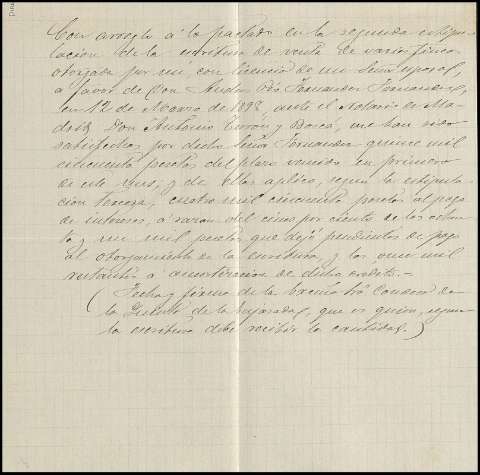 Con arreglo á lo pactado en la segunda estipu-
lacion de la escritura de venta de varias fincas
otorgada por mi, con licencia de mi Señor esposo,
á favor de Don Andrés Fernandez Fernandez,
en 12 de Marzo de 1898, ante el Notario de Ma-
drid, Don Antonio Turón y Boscá, me han sido
satisfechas por dicho Señor Fernandez quince mil
cincuenta pesetas del plazo vencido en primero
de este mes; y de ellas aplico, segun la estipula-
cion tercera, cuatro mil cincuenta pesetas al pago
de intereses, á razon del cinco por ciento de las ochen-
ta y un mil pesetas que dejó pendientes de pago
al otorgamiento de la escritura, y las once mil
restantes á amortizacion de dicho credito.-
(Fecha y firma de la Condesa de
la Puente de la, que es quien, segun
la escritura debe recibir la cantidad.)